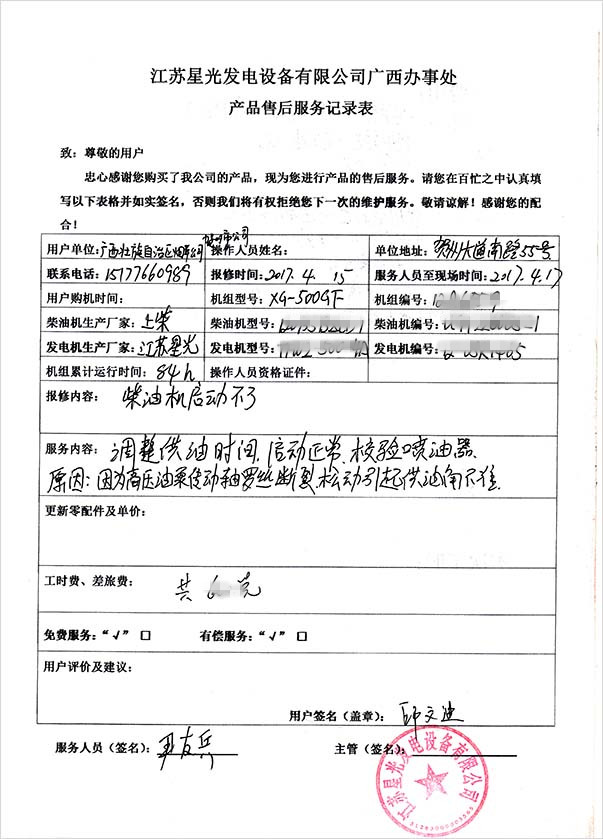 江苏星光发电设备有限公司广西办事处
产品售后服务记录表
致：尊敬的用户
忠心感谢您购买了我公司的产品，现为您进行产品的售后服务。请您在百忙之中认真填
写以下表格并如实签名，否则我们将有权拒绝您下一次的维护服务。敬请谅解！感谢您的配
合！
用户单位：广西壮族自治区 公司 操作人员姓名： 单位地址：贺州大道南路55号
联系电话：15177660989 报修时间：2017.4.15 服务人员至现场时间：2017.4.17
用户购机时间： 机组型号：XG-500GF 机组编号：
柴油机生产厂家：上柴 柴油机型号： 柴油机编号：
发电机生产厂家：江苏星光 发电机型号： 发电机编号：
机组累计运行时间：84h 操作人员资格证件：
报修内容：柴油机启动不了
服务内容：调整供油时间，启动正常，校验喷油器.
原因：因为高压油泵传动轴罗丝断裂，松动引起供油角不准.
更新零配件及单价：
工时费、差旅费： 共 元
免费服务：“√” □ 有偿服务：“√” □
用户评价及建议：
用户签名（盖章）：邱文迪
服务人员（签名）： 友兵 主管（签名）：
江苏星光发电设备有限公司